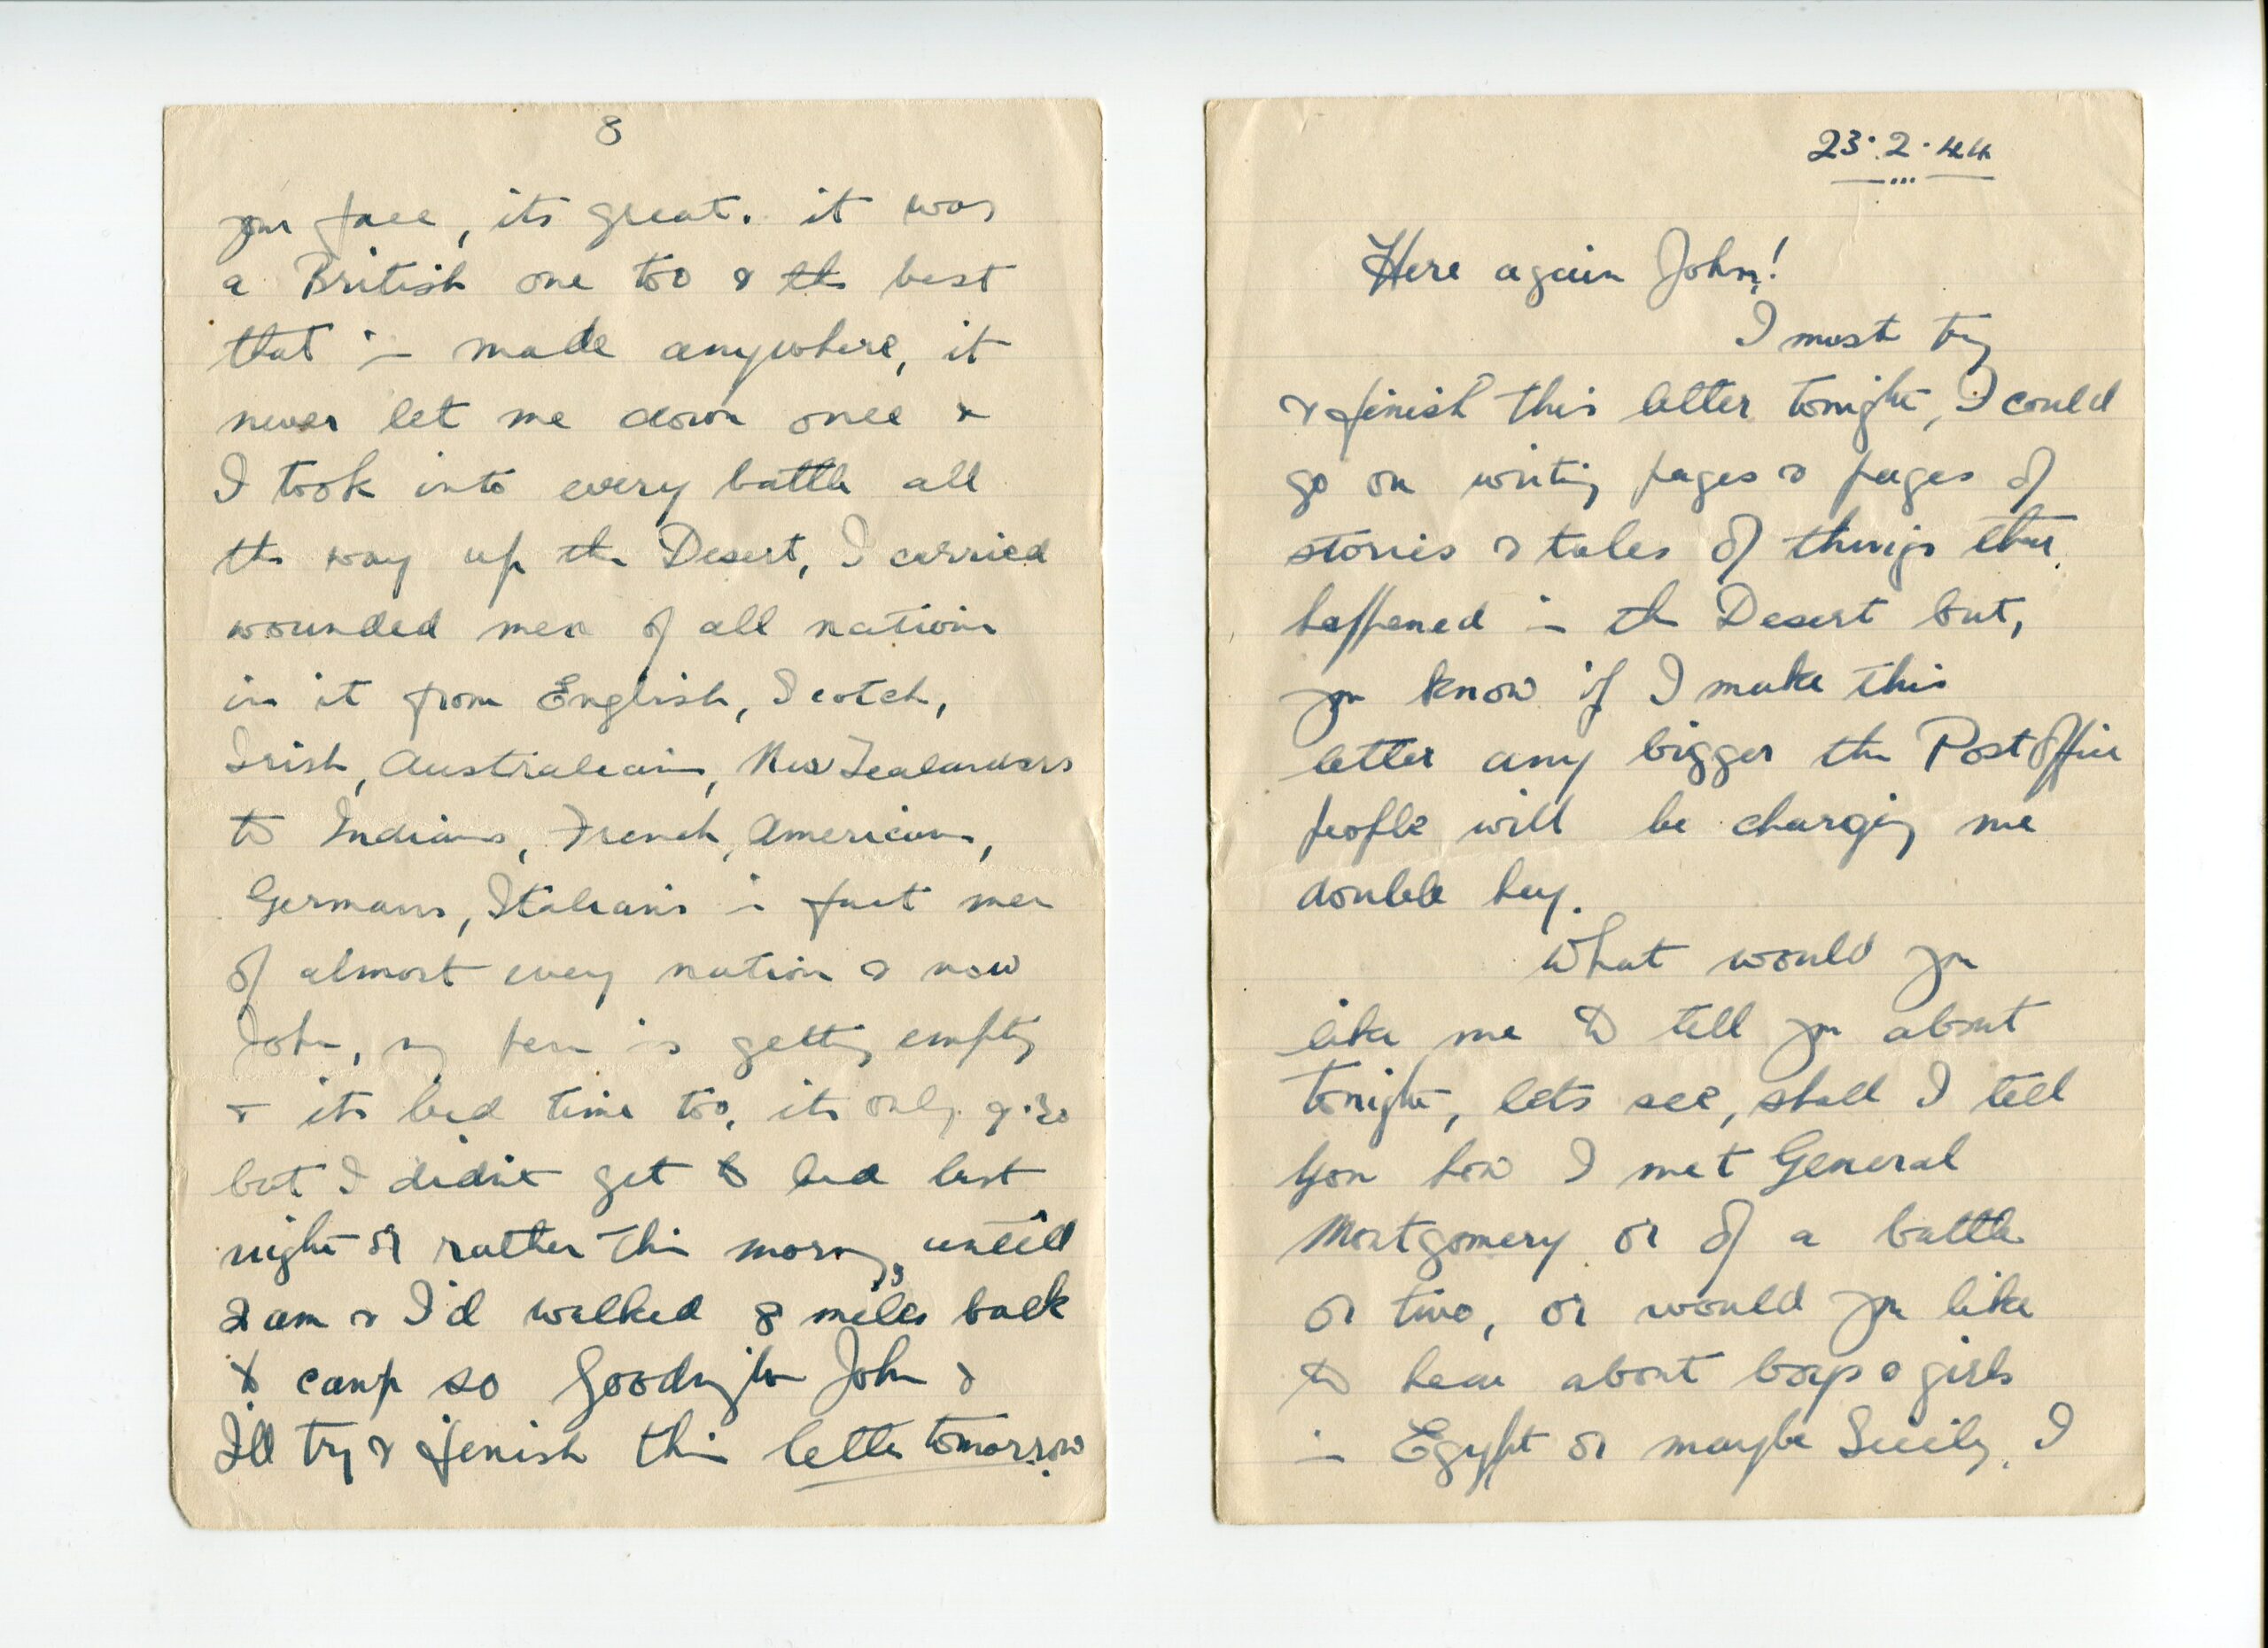 8
your face, its great. it was
a British one too & the best
that is made anywhere, it
never let me down once &
I took into every battle all
the way up the Desert, I carried
wounded men of all nations
in it from English, Scotch,
Irish, Australians, New Zealanders
to Indians, French, Americans,
Germans, Italians in fact men
of almost every nation & now
John, my pen is getting empty
& its bed time too, its only 9.30
but I didnt get to bed last
night or rather this morning, untill
2 am & I'd walked 8 miles back
to camp so Goodnight John &
I'll try & finish this letter tomorrow
23.2.44
Here again John!
I must try
& finish this letter tonight, I could
go on writing pages & pages of
stories & tales of things that
happened in the Desert but,
you know if I make this
letter any bigger the Post Office
people will be charging me
double hey.
What would you
like me to tell you about
tonight, lets see, shall I tell
you how I met General
Montgomery or of a battle
or two, or would you like
to hear about boys & girls
in Egypt or maybe Sicily. I